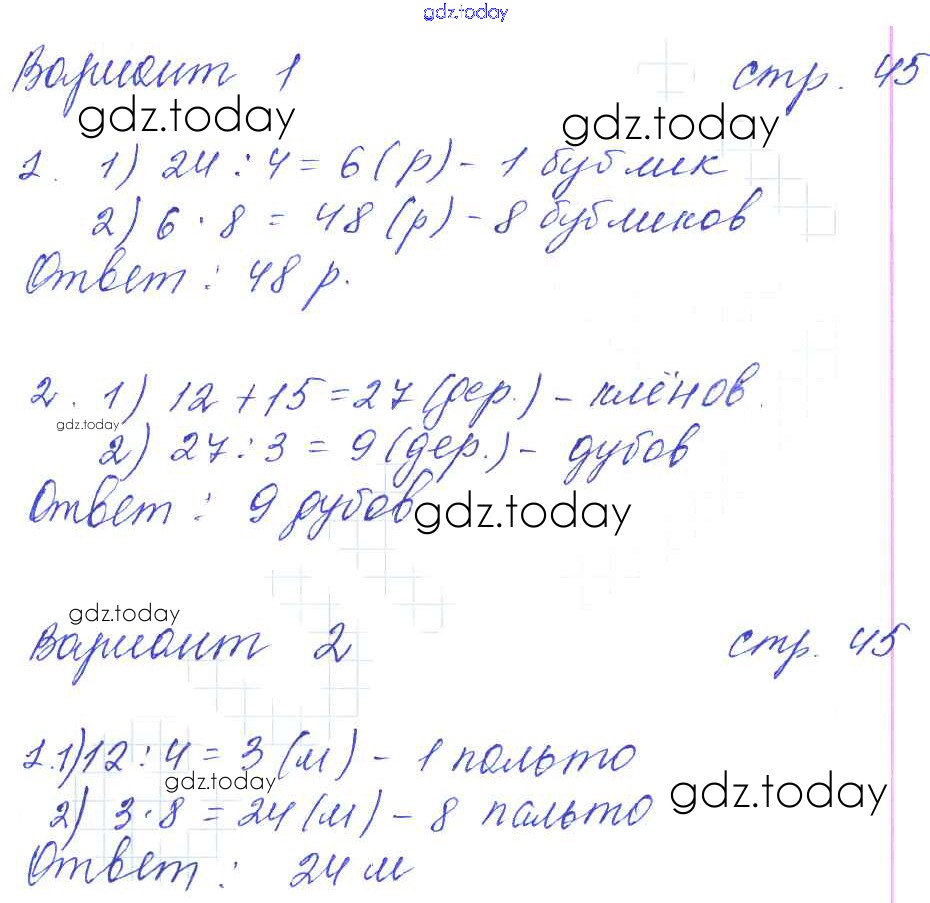 gdz.today
Вариант 1 стр. 45
gdz.today gdz.today
1. 1) 24 : 4 = 6 (р) - 1 бублик
2) 6 · 8 = 48 (р) - 8 бубликов
Ответ : 48 р.
2. 1) 12 + 15 = 27 (дер.) - клёнов
gdz.today
2) 27 : 3 = 9 (дер.) - дубов
Ответ : 9 дубов
gdz.today
gdz.today
Вариант 2 стр. 45
1. 1) 12 : 4 = 3 (м) - 1 пальто
gdz.today gdz.today
2) 3 · 8 = 24 (м) - 8 пальто
Ответ : 24 м